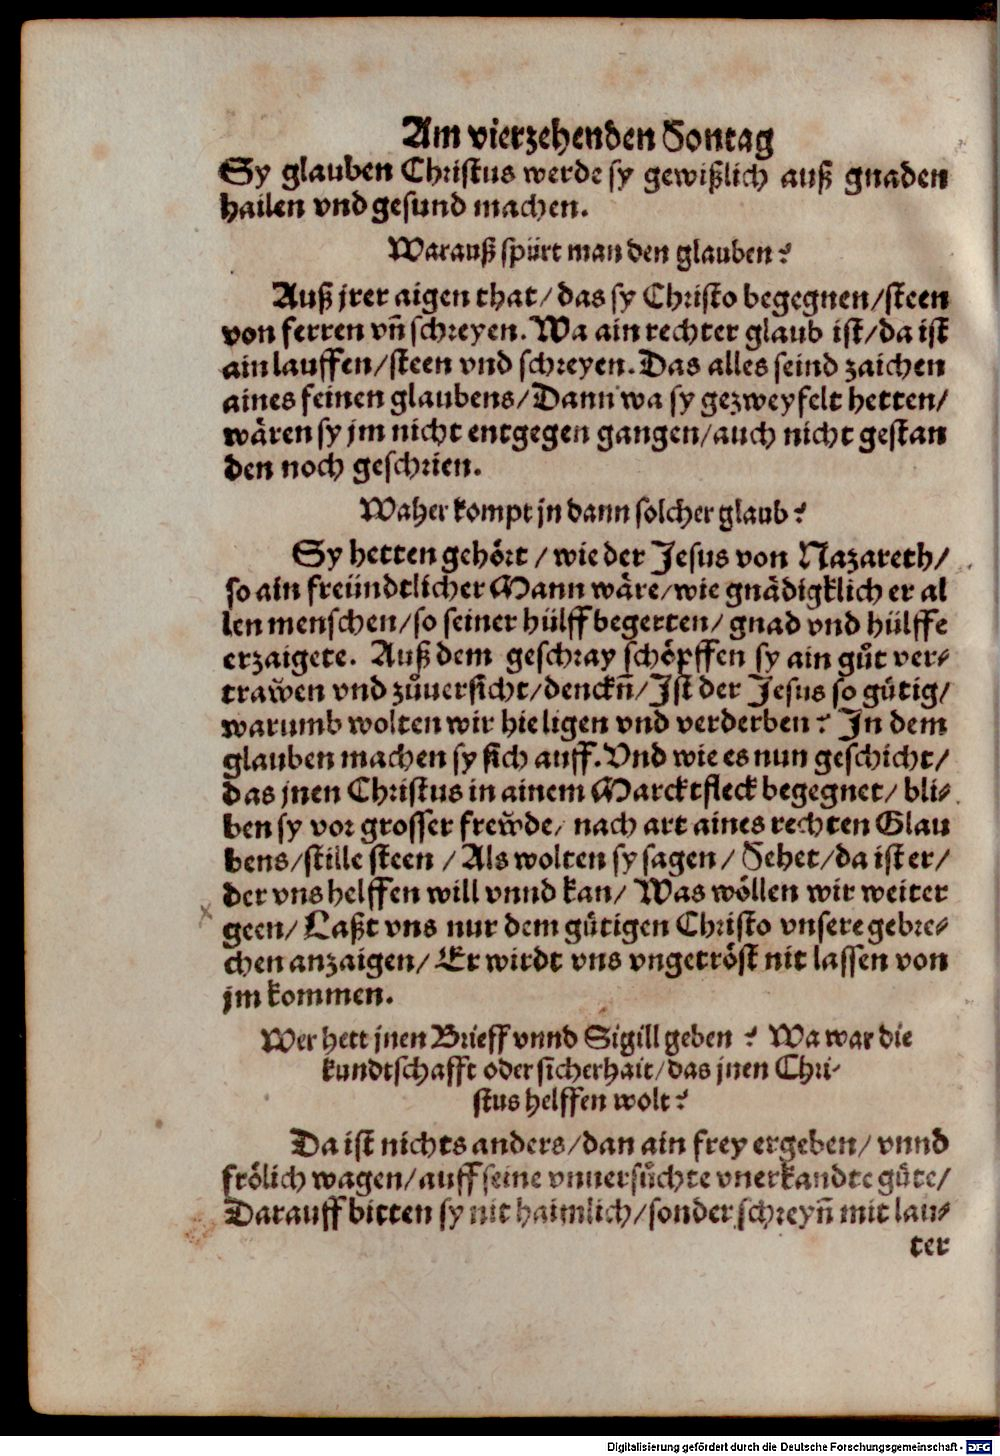 Am vierzehenden Sontag
Sy glauben Christus werde sy gewißlich auß gnaden
hailen vnd gesund machen.
Warauß spürt man den glauben?
Auß jrer aigen that/das sy Christo begegnen/steen
von ferren vñ schreyen. Wa ain rechter glaub ist/da ist
ain lauffen/steen vnd schreyen. Das alles seind zaichen
aines feinen glaubens/Dann wa sy gezweyfelt hetten/
wären sy jm nicht entgegen gangen/auch nicht gestan
den noch geschrien.
Waher kompt jn dann solcher glaub?
Sy hetten gehört/wie der Jesus von Nazareth/
so ain freündtlicher Mann wäre/wie gnädigklich er al
len menschen/so seiner hülff begerten/gnad vnd hülffe
erzaigete. Auß dem geschray schöpffen sy ain gůt ver⸗
traẅen vnd zůuersicht/denckñ/Ist der Jesus so gütig/
warumb wolten wir hie ligen vnd verderben? In dem
glauben machen sy sich auff. Vnd wie es nun geschicht/
das jnen Christus in ainem Marcktfleck begegnet/bli⸗
ben sy vor grosser freẅde/nach art aines rechten Glau
bens/stille steen/Als wolten sy sagen/Sehet/da ist er/
der vns helffen will vnnd kan/Was wöllen wir weiter
geen/Laßt vns nur dem gütigen Christo vnsere gebre⸗
chen anzaigen/Er wirdt vns vngetröst nit lassen von
jm kommen.
Wer hett jnen Brieff vnnd Sigill geben? Wa war die
kundtschafft oder sicherhait/das jnen Chri⸗
stus helffen wolt?
Da ist nichts anders/dan ain frey ergeben/vnnd
frölich wagen/auff seine vnuersůchte vnerkandte güte/
Darauff bitten sy nit haimlich/sonder schreyñ mit lau⸗
ter
Digitalisierung gefördert durch die Deutsche Forschungsgemeinschaft - DFG